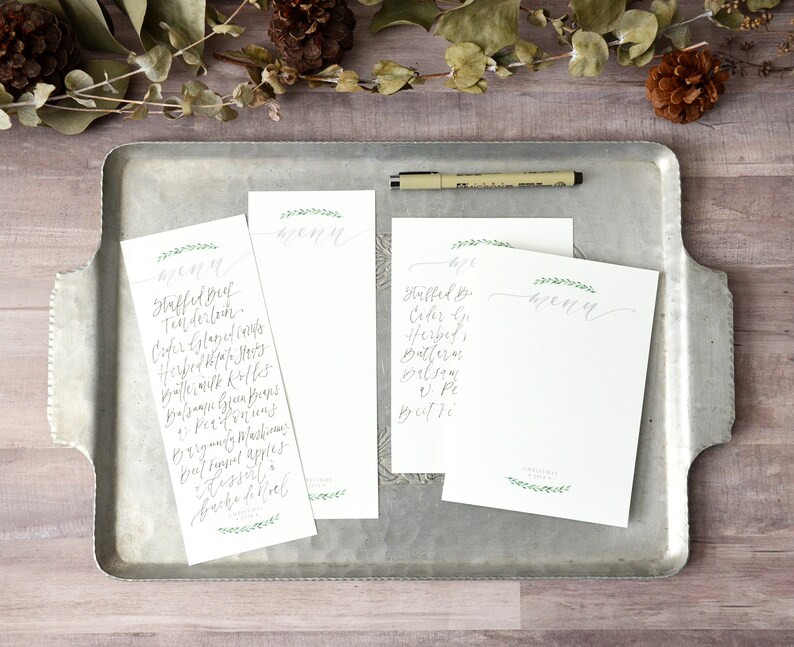 menu
Stuffed Beef
Tenderloin
Cider Glazed Carrots
Herbed Potato Stacks
Buttermilk Rolls
Balsamic Green Beans
w. Pearl Onions
Burgundy Mushrooms
Beet Fennel Apples
dessert
Buche de Noel
CHRISTMAS
menu
me
Stuffed Be
Cider G
Herbed
Butterm
Balsam
w. Pe
Beet Fe
menu
CHRISTMAS
2018